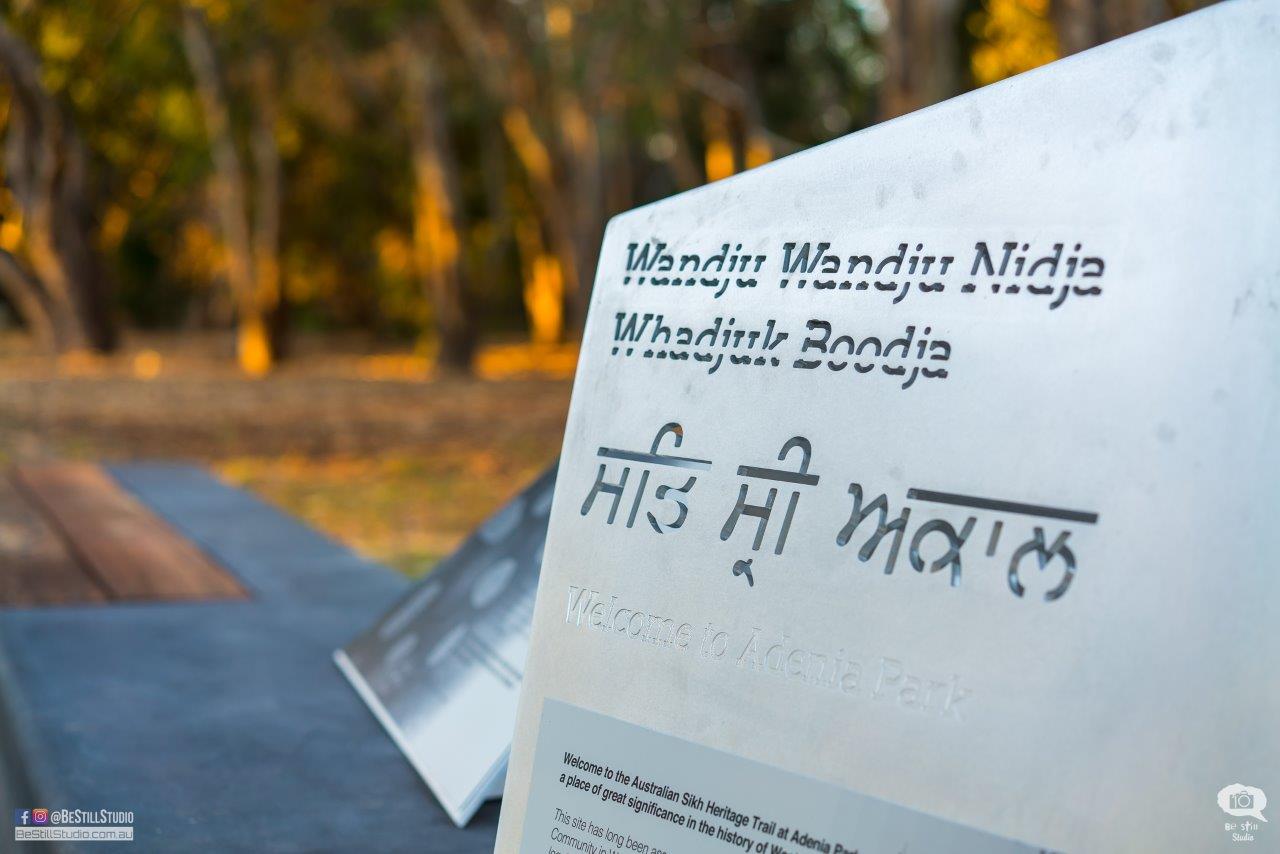 Wandju Wandju Nidja
Whadjuk Boodja
ਸਤਿ ਸ੍ਰੀ ਅਕਾਲ
Welcome to Adenia Park
Welcome to the Australian Sikh Heritage Trail at Adenia Park
a place of great significance in the history of
This site has long been
Community in
@BeStillStudio
BeStillStudio.com.au
Be Still
Studio